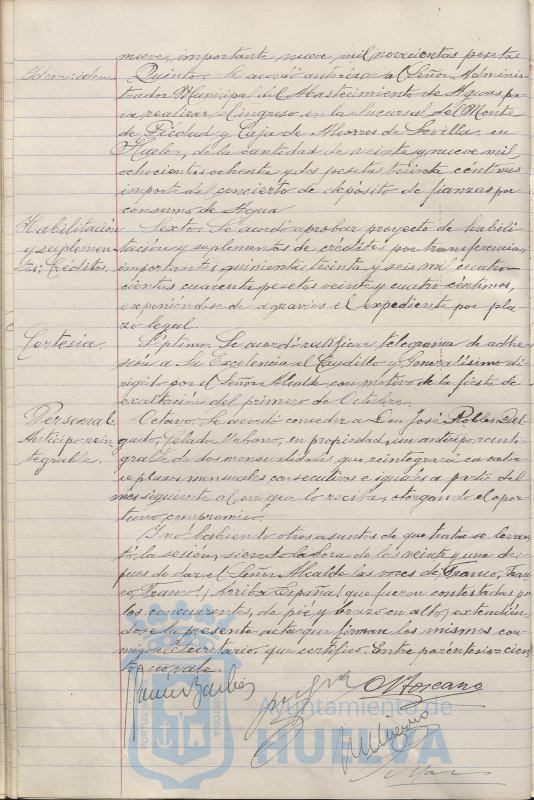 nueve, importante nueve mil novecientas pesetas
Idem: idem. Quinto. Se acordó autorizar al Señor Adminis-
trador Municipal del Abastecimiento de Aguas pa-
ra realizar el ingreso, en la Sucursal del Monte
de Piedad y Caja de Ahorros de Sevilla, en
Huelva, de la cantidad de veinte y nueve mil
ochocientas ochenta y dos pesetas treinta céntimos
importe del concierto de depósito de fianzas por
consumo de Agua
Habilitación Sexto. Se acordó aprobar proyecto de habili-
y suplemen- tación y suplementos de créditos por transferencia,
tos: Créditos. importantes quinientas treinta y seis mil cuatro-
cientas cuarenta pesetas veinte y cuatro céntimos,
exponiéndose de agravios el expediente por pla-
zo legal.
Cortesia. Séptimo. Se acordó ratificar telegrama de adhe-
sión a Su Excelencia el Caudillo y Generalísimo di-
rigido por el Señor Alcalde con motivo de la fiesta de
exaltación del primero de Octubre.
Personal. Octavo. Se acordó conceder a Don José Robles Del-
Anticipo rein- gado, Celador Urbano, en propiedad, un anticipo reinte-
tegrable. grable de dos mensualidades que reintegrará en cator-
ce plazos mensuales consecutivos e iguales a partir del
mes siguiente al en que lo reciba, otorgando el opor-
tuno compromiso.
Y no habiendo otros asuntos de que tratar se levan-
tó la sesión, siendo la hora de las veinte y una des-
pues de dar el Señor Alcalde las voces de Franco, Fran-
co, Franco! ¡Arriba España! que fueron contestadas por
los concurrentes, de pié y brazo en alto, extendién-
dose la presente acta que firman los mismos, con-
migo el Secretario, que certifico. Entre parentesis = cien
to = no vale.
Toscano
Ayuntamiento de
HUELVA
PORTUS CUSTODIA